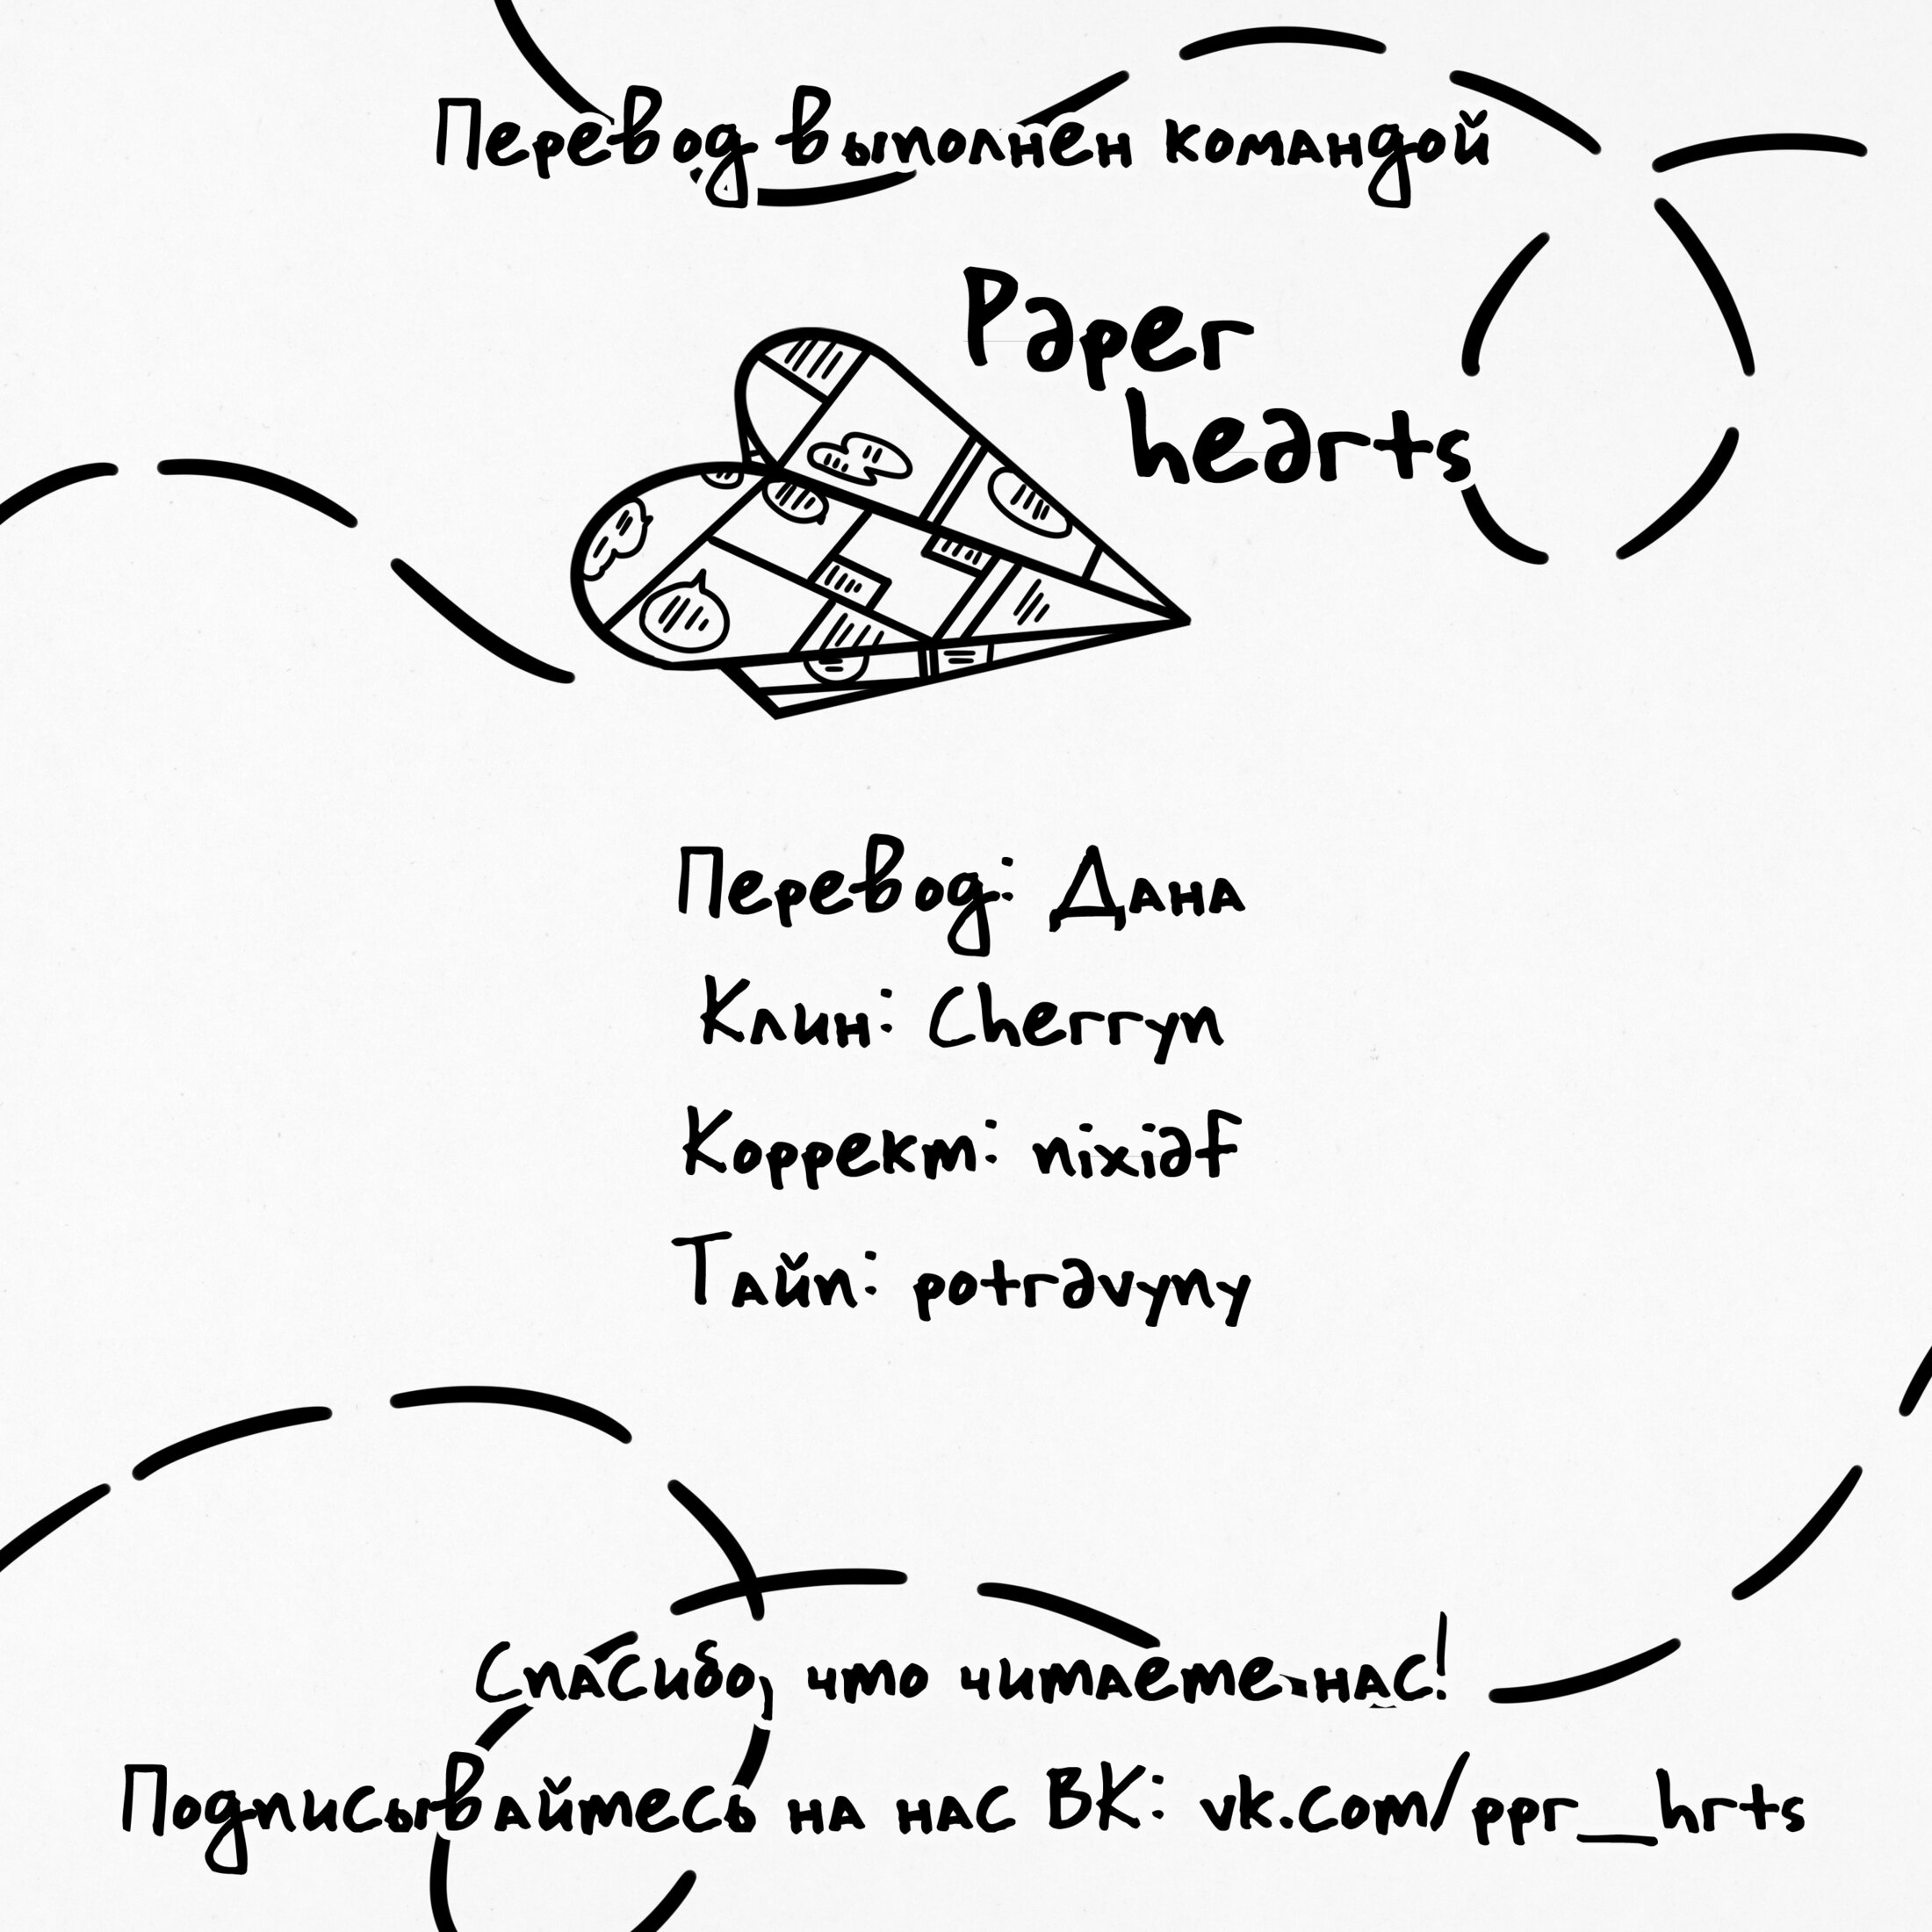 Перевод выполнен командой
Paper
hearts
Перевод: Дана
Клин: Cherryn
Коррект: nixiaf
Тайп: potravyny
Спасибо, что читаете нас!
Подписывайтесь на нас ВК: vk.com/ppr__hrts